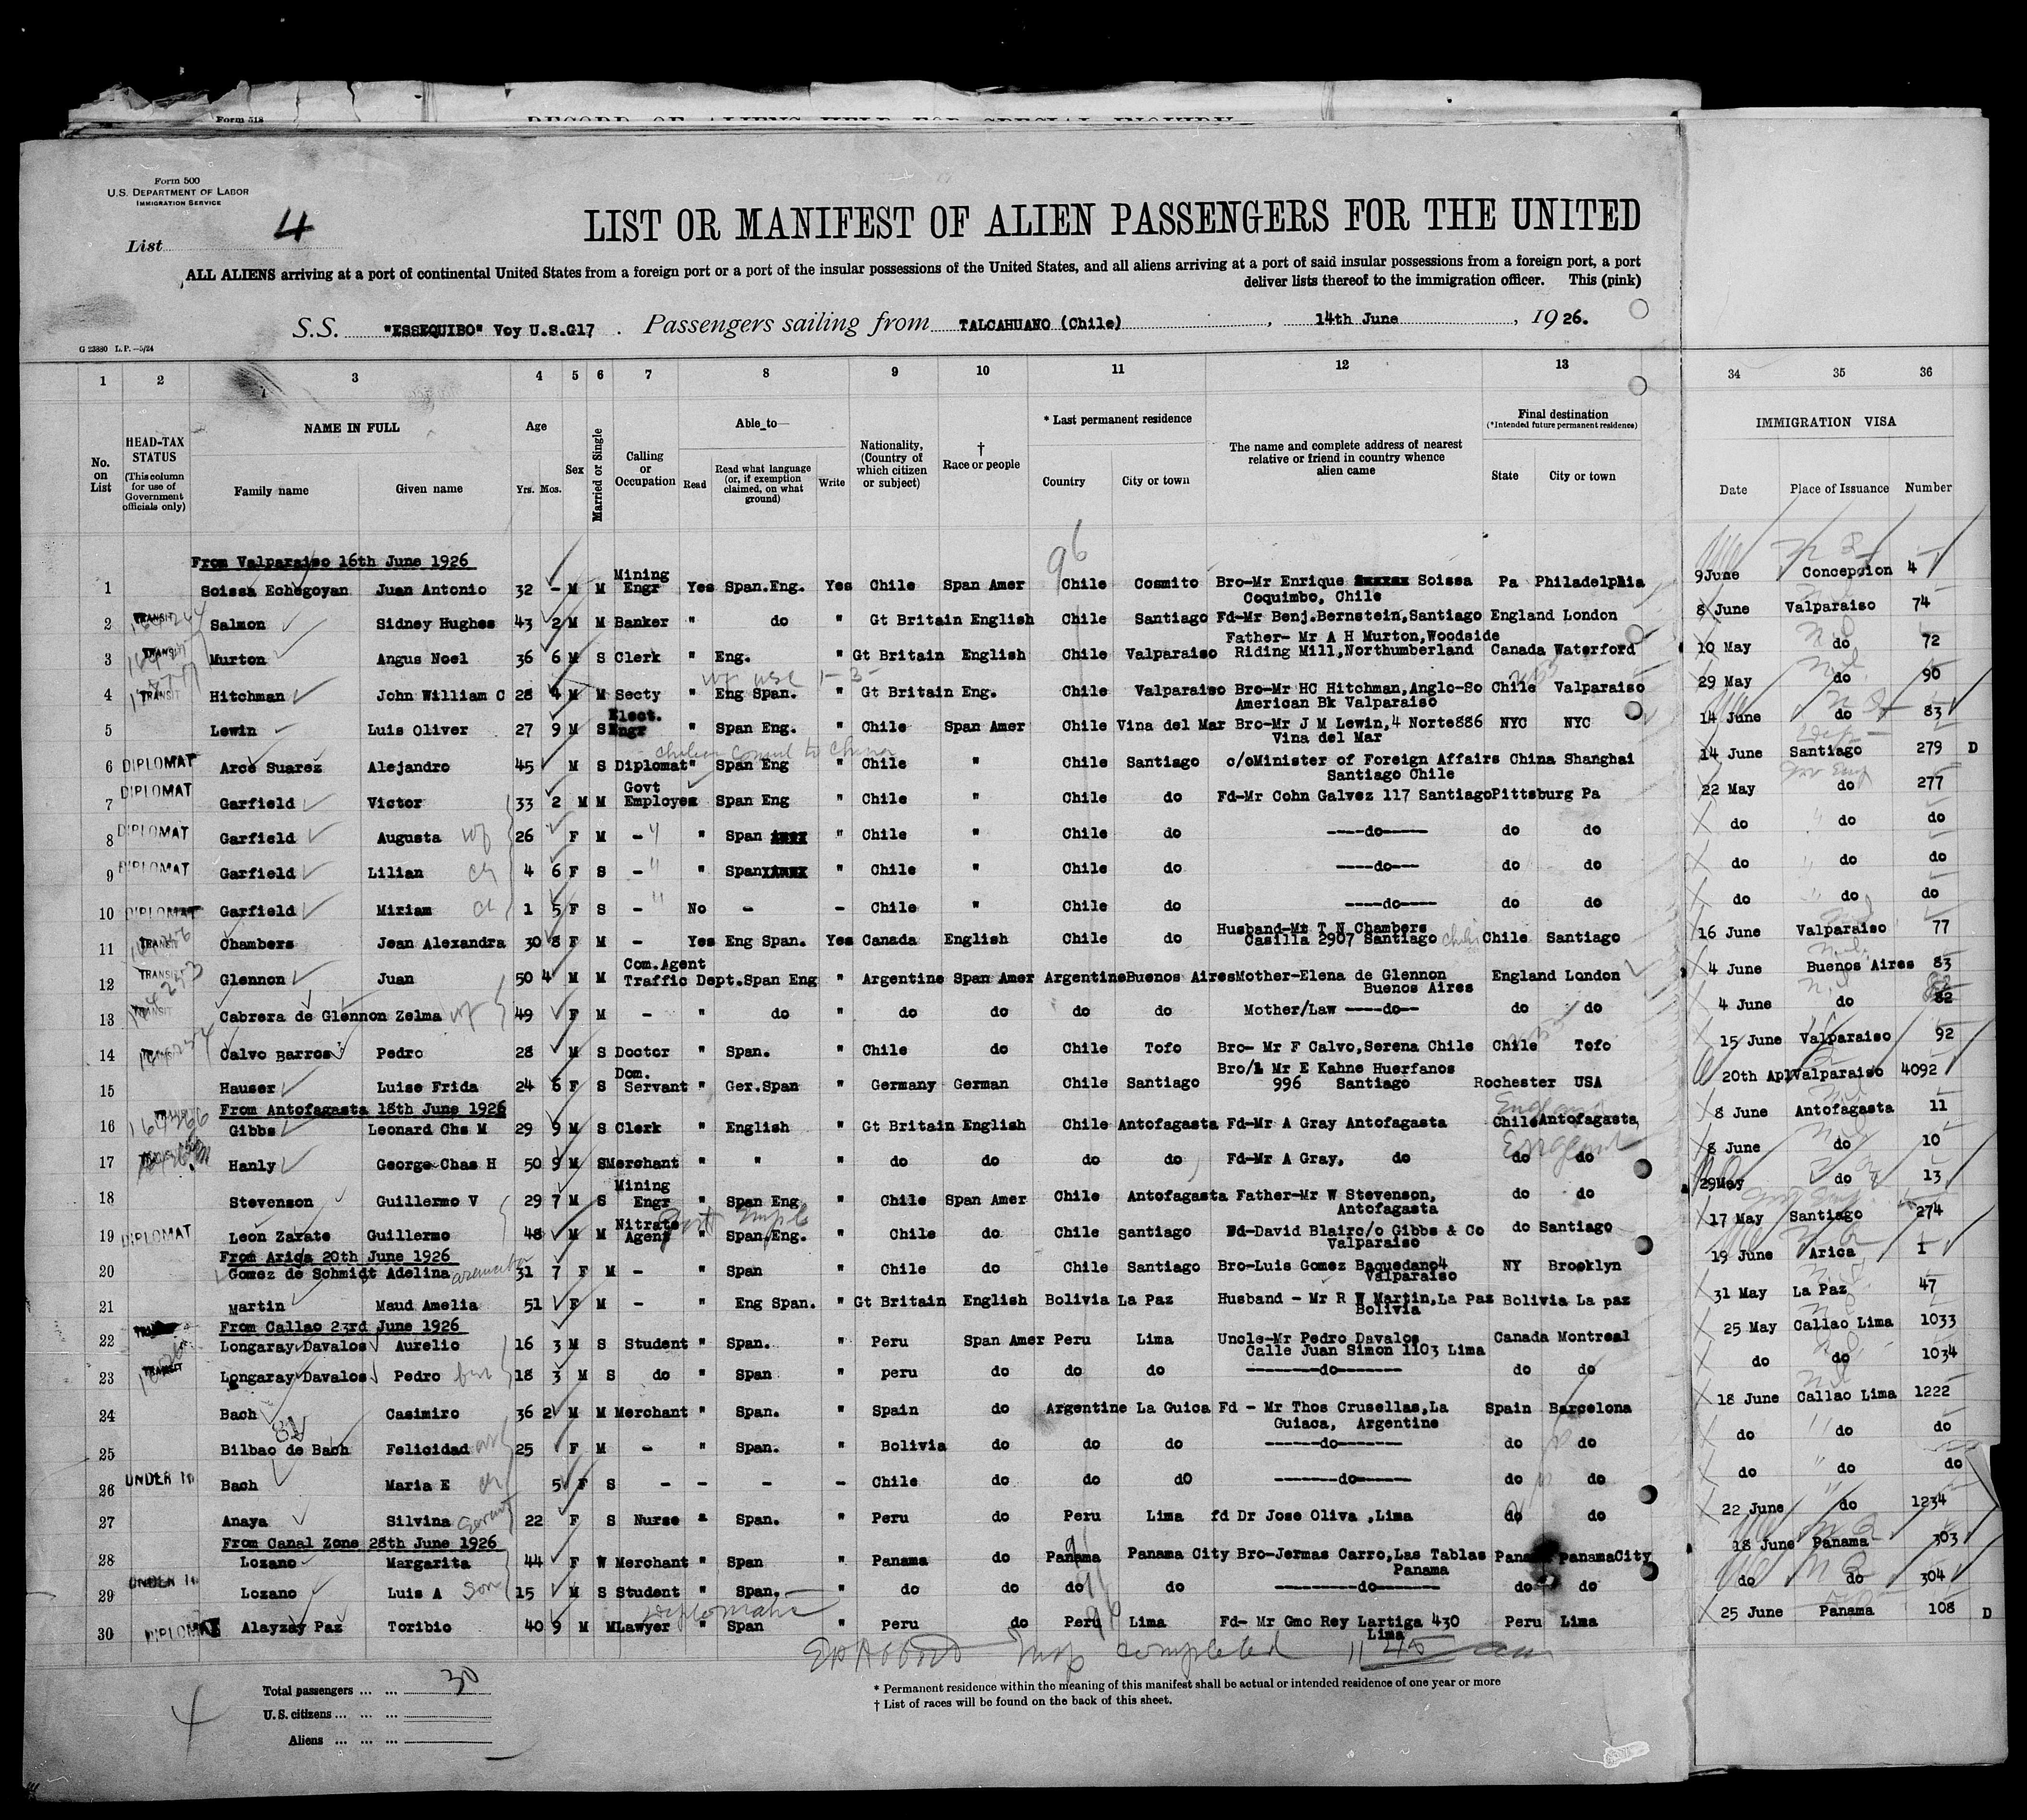 Form 518
RECORD OF ALIENS HELD FOR SPECIAL INQUIRY
Form 500
U.S. DEPARTMENT OF LABOR
IMMIGRATION SERVICE
List 4
LIST OR MANIFEST OF ALIEN PASSENGERS FOR THE UNITED
ALL ALIENS arriving at a port of continental United States from a foreign port or a port of the insular possessions of the United States, and all aliens arriving at a port of said insular possessions from a foreign port, a port
deliver lists thereof to the immigration officer. This (pink)
S.S. "ESSEQUIBO" Voy U.S.G17. Passengers sailing from TALCAHUANO (Chile), 14th June, 1926.
G 23880 L.P.—5/24
1 2 3 4 5 6 7 8 9 10 11 12 13 34 35 36
No. on List
HEAD-TAX STATUS (This column for use of Government officials only)
NAME IN FULL
Family name Given name
Age
Yrs. Mos.
Sex
Married or Single
Calling or Occupation
Able to—
Read
Read what language (or, if exemption claimed, on what ground)
Write
Nationality, (Country of which citizen or subject)
† Race or people
* Last permanent residence
Country City or town
The name and complete address of nearest relative or friend in country whence alien came
Final destination
(*Intended future permanent residence)
State City or town
IMMIGRATION VISA
Date Place of Issuance Number
From Valparaiso 16th June 1926
1 Soissa Echegoyan Juan Antonio 32 - M M Mining Engr Yes Span.Eng. Yes Chile Span Amer Chile Cosmito Bro-Mr Enrique Soissa Coquimbo, Chile Pa Philadelphia 9June Concepcion 4
2 TRANSIT Salmon Sidney Hughes 43 2 M M Banker " do " Gt Britain English Chile Santiago Fd-Mr Benj.Bernstein,Santiago England London 8 June Valparaiso 74
3 TRANSIT Murton Angus Noel 36 6 M S Clerk " Eng. " Gt Britain English Chile Valparaiso Father- Mr A H Murton,Woodside Riding Mill,Northumberland Canada Waterford 10 May do 72
4 TRANSIT Hitchman John William C 28 4 M M Secty " Eng Span. " Gt Britain Eng. Chile Valparaiso Bro-Mr HC Hitchman,Anglo-So American Bk Valparaiso Chile Valparaiso 29 May do 90
5 Lewin Luis Oliver 27 9 M S Elect. Engr " Span Eng. " Chile Span Amer Chile Vina del Mar Bro-Mr J M Lewin,4 Norte886 Vina del Mar NYC NYC 14 June do 83
Chilean Consul to China
6 DIPLOMAT Arce Suarez Alejandro 45 M S Diplomat " Span Eng " Chile " Chile Santiago c/oMinister of Foreign Affairs Santiago Chile China Shanghai 14 June Santiago 279 D
7 DIPLOMAT Garfield Victor 33 2 M M Govt Employee " Span Eng " Chile " Chile do Fd-Mr Cohn Galvez 117 Santiago Pittsburg Pa 22 May do 277
8 DIPLOMAT Garfield Augusta wf 26 F M - " Span " Chile " Chile do ----do---- do do do do do
9 DIPLOMAT Garfield Lilian ch 4 6 F S - " Span " Chile " Chile do ----do--- do do do do do
10 DIPLOMAT Garfield Miriam ch 1 5 F S - No - - Chile " Chile do ----do---- do do do do do
11 TRANSIT Chambers Jean Alexandra 30 8 F M - Yes Eng Span. Yes Canada English Chile do Husband-Mt T N Chambers Casilla 2907 Santiago Chile Santiago 16 June Valparaiso 77
12 TRANSIT Glennon Juan 50 4 M M Com.Agent Traffic Dept. Span Eng " Argentine Span Amer Argentine Buenos Aires Mother-Elena de Glennon Buenos Aires England London 4 June Buenos Aires 83
13 TRANSIT Cabrera de Glennon Zelma wf 49 F M - " do " do do do do Mother/Law ----do-- do do 4 June do 82
14 TRANSIT Calvo Barros Pedro 28 M S Doctor " Span. " Chile do Chile Tofo Bro- Mr F Calvo,Serena Chile Chile Tofo 15 June Valparaiso 92
15 Hauser Luise Frida 24 6 F S Dom. Servant " Ger.Span " Germany German Chile Santiago Bro/L Mr E Kahne Huerfanos 996 Santiago Rochester USA 20th Apl Valparaiso 4092
From Antofagasta 18th June 1926
16 TRANSIT Gibbs Leonard Chs M 29 9 M S Clerk " English " Gt Britain English Chile Antofagasta Fd-Mr A Gray Antofagasta Chile Antofagasta England 8 June Antofagasta 11
17 Hanly George Chas H 50 9 M S Merchant " " " do do do do Fd-Mr A Gray, do do do England 8 June do 10
18 Stevenson Guillermo V 29 7 M S Mining Engr " Span Eng " Chile Span Amer Chile Antofagasta Father-Mr W Stevenson, Antofagasta do do 29May do 13
19 DIPLOMAT Leon Zarate Guillermo 48 M M Nitrate Agent " Span.Eng. " Chile do Chile Santiago Fd-David Blair c/o Gibbs & Co Valparaiso do Santiago 17 May Santiago 274
From Arica 20th June 1926
20 Gomez de Schmidt Adelina 31 7 F M - " Span " Chile do Chile Santiago Bro-Luis Gomez Baquedano4 Valparaiso NY Brooklyn 19 June Arica 1
21 Martin Maud Amelia 51 F M - " Eng Span. " Gt Britain English Bolivia La Paz Husband - Mr R W Martin,La Paz Bolivia Bolivia La paz 31 May La Paz 47
From Callao 23rd June 1926
22 Longaray Davalos Aurelio 16 3 M S Student " Span. " Peru Span Amer Peru Lima Uncle-Mr Pedro Davalos Calle Juan Simon 1103 Lima Canada Montreal 25 May Callao Lima 1033
23 TRANSIT Longaray Davalos Pedro 18 3 M S do " Span " peru do do do --------do-------- do do do do 1034
24 Bach Casimiro 36 2 M M Merchant " Span. " Spain do Argentine La Guica Fd - Mr Thos Crusellas,La Guiaca, Argentine Spain Barcelona 18 June Callao Lima 1222
25 Bilbao de Bach Felicidad 25 F M - " Span. " Bolivia do do do ------do------- do do do do do
26 UNDER 16 Bach Maria E ch 5 F S - - - - Chile do do dO -------do------ do do do do do
27 Anaya Silvina Servant 22 F S Nurse " Span. " Peru do Peru Lima fd Dr Jose Oliva ,Lima do do 22 June do 1234
From Canal Zone 28th June 1926
28 Lozano Margarita 44 F W Merchant " Span " Panama do Panama Panama City Bro-Jermas Carro,Las Tablas Panama Panama PanamaCity 18 June Panama 303
29 UNDER 16 Lozano Luis A Son 15 M S Student " Span. " do do do do ---------do-------- do do do do 304
Diplomatic
30 DIPLOMAT Alayzay Paz Toribio 40 9 M M Lawyer " Span " Peru do Peru Lima Fd- Mr Gmo Rey Lartiga 430 Lima Peru Lima 25 June Panama 108 D
Insp completed 11 45 am
Total passengers ... ... 30
U.S. citizens ... ... ...
Aliens ... ... ...
* Permanent residence within the meaning of this manifest shall be actual or intended residence of one year or more
† List of races will be found on the back of this sheet.